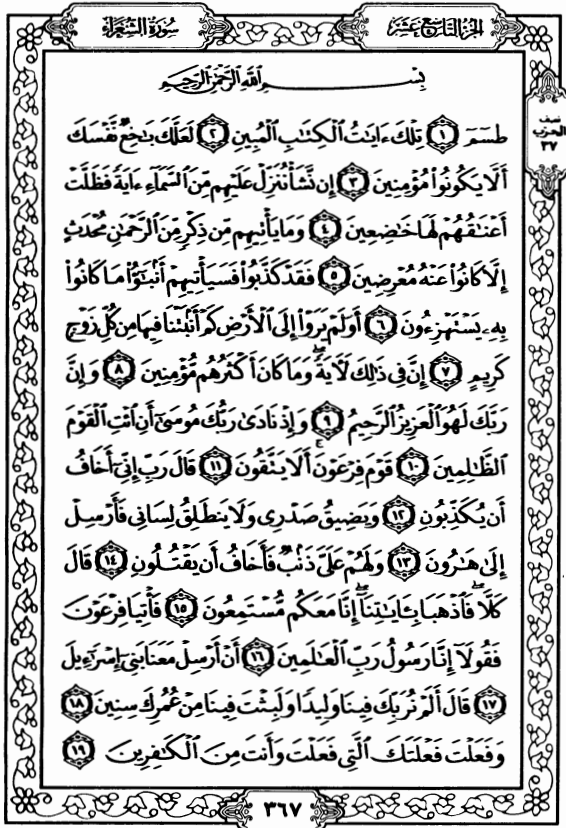 الجزء التاسع عشر
سورة الشعراء
بِسْمِ ٱللَّهِ ٱلرَّحْمَٰنِ ٱلرَّحِيمِ
نصف
الحزب
٣٧
طسٓمٓ ١ تِلْكَ ءَايَٰتُ ٱلْكِتَٰبِ ٱلْمُبِينِ ٢ لَعَلَّكَ بَٰخِعٌ نَّفْسَكَ
أَلَّا يَكُونُوا۟ مُؤْمِنِينَ ٣ إِن نَّشَأْ نُنَزِّلْ عَلَيْهِم مِّنَ ٱلسَّمَآءِ ءَايَةً فَظَلَّتْ
أَعْنَٰقُهُمْ لَهَا خَٰضِعِينَ ٤ وَمَا يَأْتِيهِم مِّن ذِكْرٍ مِّنَ ٱلرَّحْمَٰنِ مُحْدَثٍ
إِلَّا كَانُوا۟ عَنْهُ مُعْرِضِينَ ٥ فَقَدْ كَذَّبُوا۟ فَسَيَأْتِيهِمْ أَنۢبَٰٓؤُا۟ مَا كَانُوا۟
بِهِۦ يَسْتَهْزِءُونَ ٦ أَوَلَمْ يَرَوْا۟ إِلَى ٱلْأَرْضِ كَمْ أَنۢبَتْنَا فِيهَا مِن كُلِّ زَوْجٍ
كَرِيمٍ ٧ إِنَّ فِى ذَٰلِكَ لَءَايَةً ۖ وَمَا كَانَ أَكْثَرُهُم مُّؤْمِنِينَ ٨ وَإِنَّ
رَبَّكَ لَهُوَ ٱلْعَزِيزُ ٱلرَّحِيمُ ٩ وَإِذْ نَادَىٰ رَبُّكَ مُوسَىٰٓ أَنِ ٱئْتِ ٱلْقَوْمَ
ٱلظَّٰلِمِينَ ١٠ قَوْمَ فِرْعَوْنَ ۚ أَلَا يَتَّقُونَ ١١ قَالَ رَبِّ إِنِّىٓ أَخَافُ
أَن يُكَذِّبُونِ ١٢ وَيَضِيقُ صَدْرِى وَلَا يَنطَلِقُ لِسَانِى فَأَرْسِلْ
إِلَىٰ هَٰرُونَ ١٣ وَلَهُمْ عَلَىَّ ذَنۢبٌ فَأَخَافُ أَن يَقْتُلُونِ ١٤ قَالَ
كَلَّا ۖ فَٱذْهَبَا بِـَٔايَٰتِنَآ ۖ إِنَّا مَعَكُم مُّسْتَمِعُونَ ١٥ فَأْتِيَا فِرْعَوْنَ
فَقُولَآ إِنَّا رَسُولُ رَبِّ ٱلْعَٰلَمِينَ ١٦ أَنْ أَرْسِلْ مَعَنَا بَنِىٓ إِسْرَٰٓءِيلَ
١٧ قَالَ أَلَمْ نُرَبِّكَ فِينَا وَلِيدًا وَلَبِثْتَ فِينَا مِنْ عُمُرِكَ سِنِينَ ١٨
وَفَعَلْتَ فَعْلَتَكَ ٱلَّتِى فَعَلْتَ وَأَنتَ مِنَ ٱلْكَٰفِرِينَ ١٩
٣٦٧